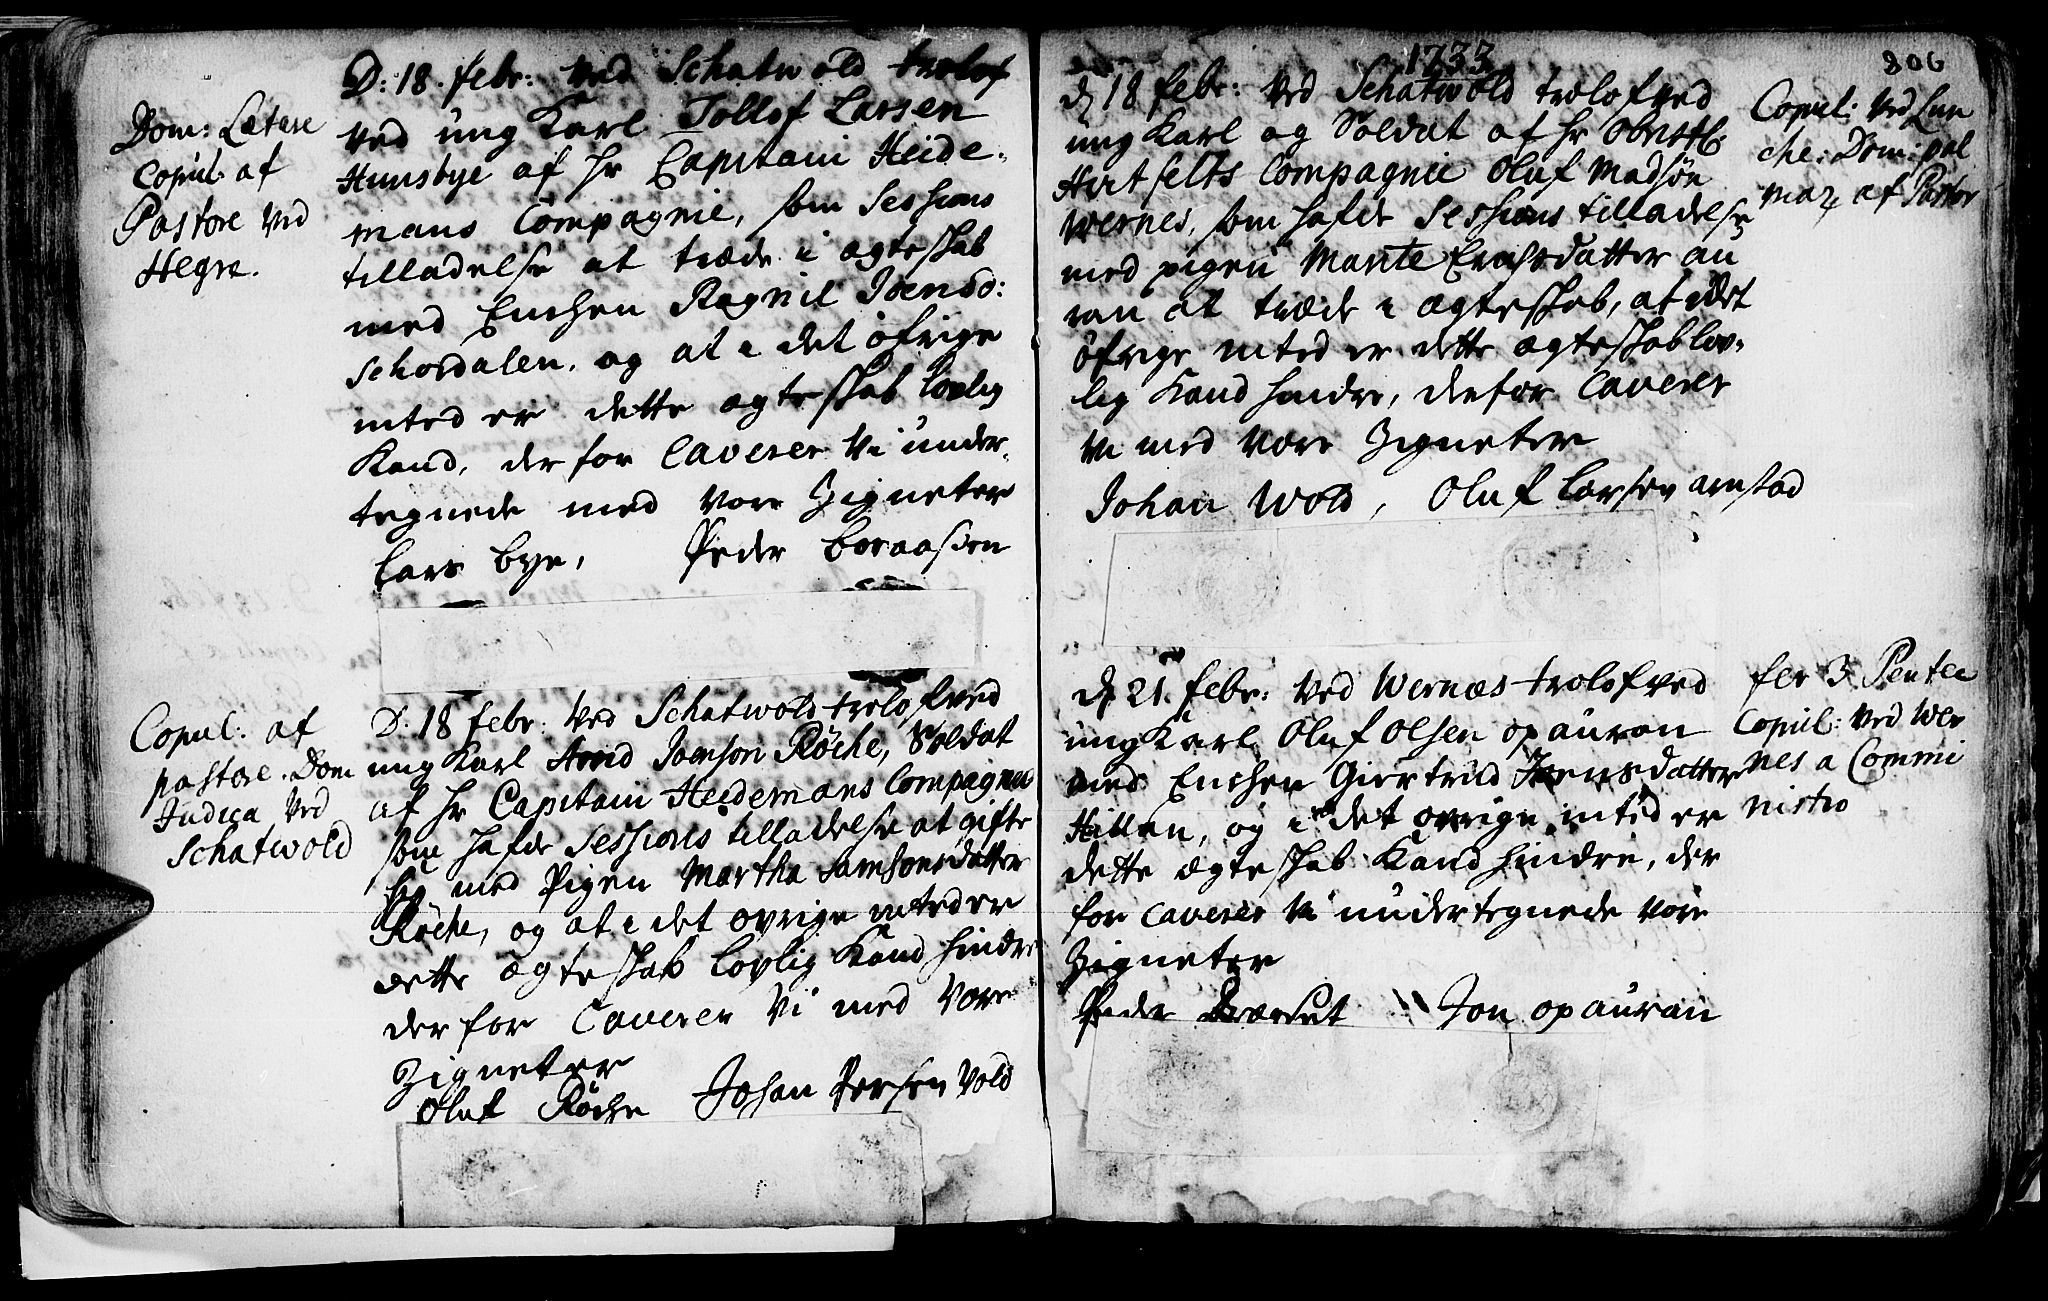 Dom: Lætare
Copul: af
Pastore ved
Hegre.
D: 18. febr: ved Schatwold trolof
ved ung Karl Tollof Larsen
Hunsbye af Hr Capitain Heide-
mans Compagnie, som Sessions
tilladelse at træde i ægteskab
med Enchen Ragnil Joensd:
Schordalen, og at i det öfrige
inted er dette ægteskab lovlig
Kand, derfor Caverer Vi under-
tegnede med vore Zigneter
Lars bye, Peder boraassen
Copul: af
pastore. Dom
Judica ved
Schatwold
D: 18 febr: ved Schatwold trolofved
ung Karl Joenson Röche, Soldat
af Hr Capitain Heidemans Compagnie
som hafde Sessions tilladelse at gifte
sig med Pigen Martha Samsonsdatter
Röche, og at i det ovrige inted er
dette ægteskab lovlig Kand hindre
derfor Caverer Vi med vore
Zigneter
Oluf Röche Johan Persen Vold
1733
806
d 18 febr: ved Schatwold trolofved
ung Karl og Soldat af Hr Obristl:
Hirtfelts Compagnie Oluf Madsön
Wernes, som hafde Sessions tilladelse
med pigen Marite datter au
ran at træde i ægteskab, at i det
öfrige inted er dette ægteskab lov-
lig Kand hindre, derfor Caverer
Vi med vore Zigneter
Johan Wold, Oluf Larsen arnstad
Copul: ved Lun
che: Dom: pal
mar af Pastor
d 21. febr: ved Wernæs trolofved
ung Karl Oluf Olsen opauran
med Enchen Giertrud Joensdatter
Hillen, og i det ovrige inted er
dette ægteskab Kand hindre, der
for Caverer Vi undertegnede vore
Zigneter
Peder Jon opauran
fer 3 Pentec
Copul: ved Wer
nes a Commi
nistro